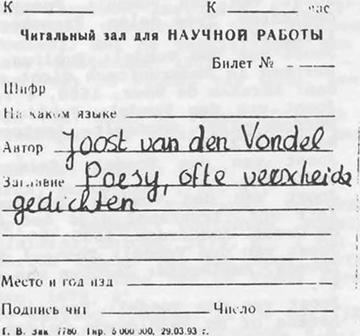 К К час
Читальный зал для НАУЧНОЙ РАБОТЫ
Билет №
Шифр
На каком языке
Автор Joost van den Vondel
Заглавие Poesy, ofte verscheide
gedichten
Место и год изд
Подпись чит Число
Г. В. Зак. 7780. Тир. 5 000 000, 29.03.93 г.